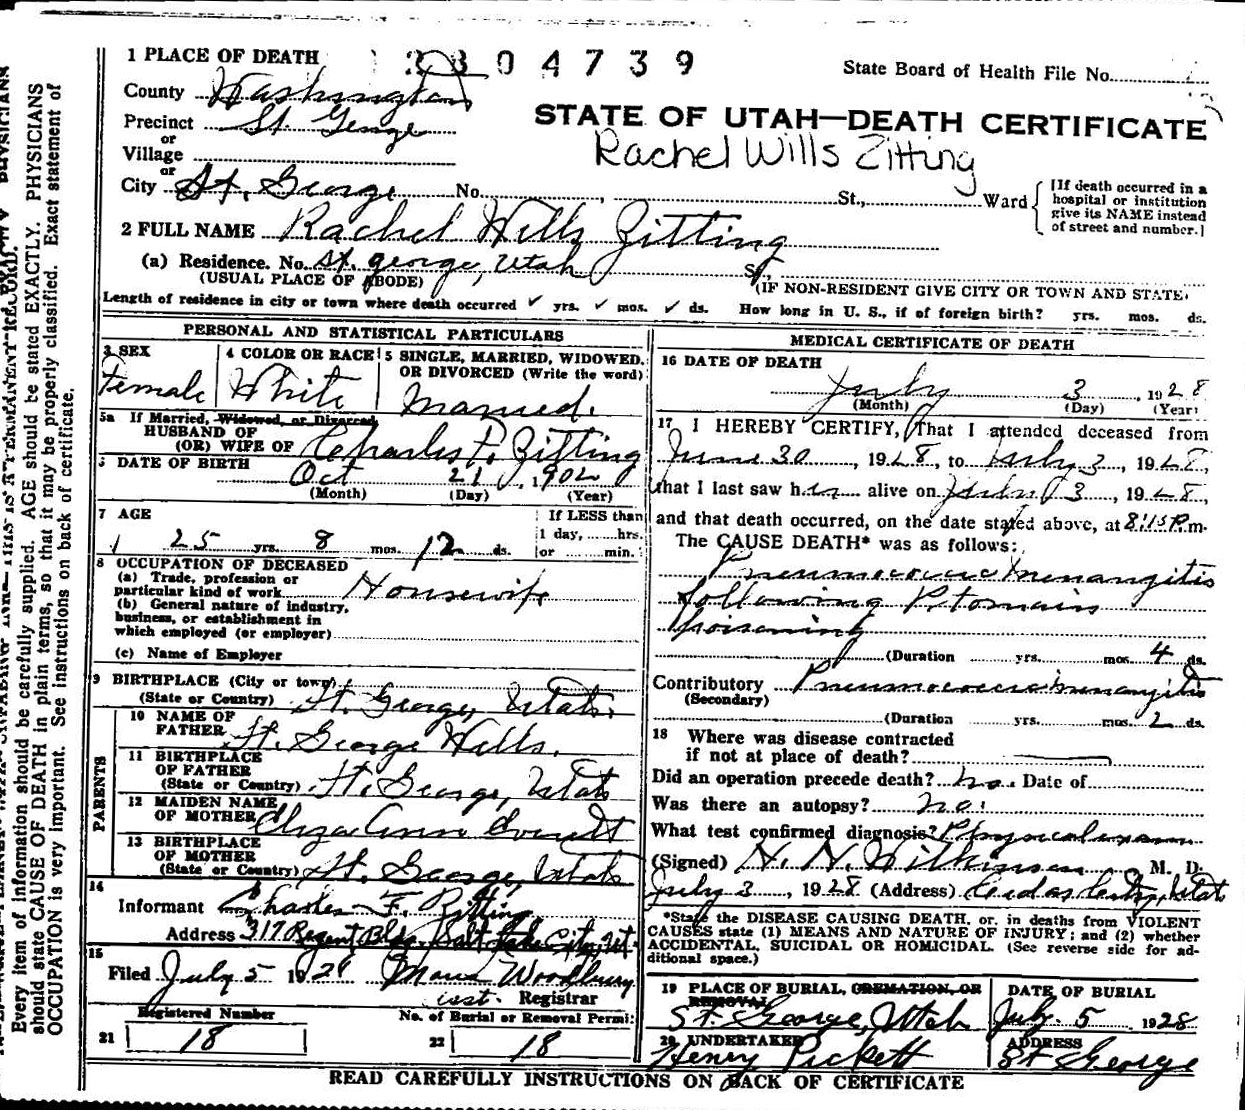 1 PLACE OF DEATH
2304739
State Board of Health File No.
County Washington
Precinct St. George
or
Village
or
City St. George No. St., Ward
[If death occurred in a hospital or institution give its NAME instead of street and number.]
STATE OF UTAH—DEATH CERTIFICATE
Rachel Wills Zitting
2 FULL NAME Rachel Wills Zitting
(a) Residence. No. St. George, Utah St.,
(USUAL PLACE OF ABODE) (IF NON-RESIDENT GIVE CITY OR TOWN AND STATE.
Length of residence in city or town where death occurred ✓ yrs. ✓ mos. ✓ ds. How long in U. S., if of foreign birth? yrs. mos. ds.
PERSONAL AND STATISTICAL PARTICULARS
3 SEX
Female
4 COLOR OR RACE
White
5 SINGLE, MARRIED, WIDOWED, OR DIVORCED (Write the word)
Married.
5a If Married, Widowed, or Divorced
HUSBAND OF
(OR) WIFE OF Charles F. Zitting
DATE OF BIRTH Oct 21, 1902
(Month) (Day) (Year)
7 AGE
25 yrs. 8 mos. 12 ds.
If LESS than
1 day, hrs.
or min.
8 OCCUPATION OF DECEASED
(a) Trade, profession or
particular kind of work Housewife
(b) General nature of industry,
business, or establishment in
which employed (or employer)
(c) Name of Employer
9 BIRTHPLACE (City or town)
(State or Country) St. George, Utah.
PARENTS
10 NAME OF
FATHER St. George Wills.
11 BIRTHPLACE
OF FATHER
(State or Country) St. George, Utah
12 MAIDEN NAME
OF MOTHER Eliza Ann Everett
13 BIRTHPLACE
OF MOTHER
(State or Country) St. George, Utah
14
Informant Charles F. Zitting
Address 317 Regent Bldg. Salt Lake City, Ut.
15
Filed July 5 1928 Woodbury
asst. Registrar
Registered Number
21 18
No. of Burial or Removal Permit
22 18
MEDICAL CERTIFICATE OF DEATH
16 DATE OF DEATH
July 3, 1928
(Month) (Day) (Year)
17 I HEREBY CERTIFY, That I attended deceased from
June 30, 1928, to July 3, 1928,
that I last saw her alive on July 3, 1928,
and that death occurred, on the date stated above, at 8:15 P.m.
The CAUSE DEATH* was as follows:
Pneumococcic menangitis
following Ptomain
poisoning
(Duration yrs. mos. 4 ds.
Contributory Pneumococcic menangitis
(Secondary)
(Duration yrs. mos. 2 ds.
18 Where was disease contracted
if not at place of death?
Did an operation precede death? no. Date of
Was there an autopsy? no.
What test confirmed diagnosis? Physical exam
(Signed) N. N. Wilkinson, M. D.
July 3, 1928 (Address) Cedar City, Utah
*State the DISEASE CAUSING DEATH, or, in deaths from VIOLENT
CAUSES state (1) MEANS AND NATURE OF INJURY; and (2) whether
ACCIDENTAL, SUICIDAL OR HOMICIDAL. (See reverse side for ad-
ditional space.)
19 PLACE OF BURIAL, CREMATION, OR
REMOVAL
St. George, Utah
DATE OF BURIAL
July 5 1928
20 UNDERTAKER
Henry Pickett
ADDRESS
St George
READ CAREFULLY INSTRUCTIONS ON BACK OF CERTIFICATE
Every item of information should be carefully supplied. AGE should be stated EXACTLY. PHYSICIANS
should state CAUSE OF DEATH in plain terms, so that it may be properly classified. Exact statement of
OCCUPATION is very important. See instructions on back of certificate.